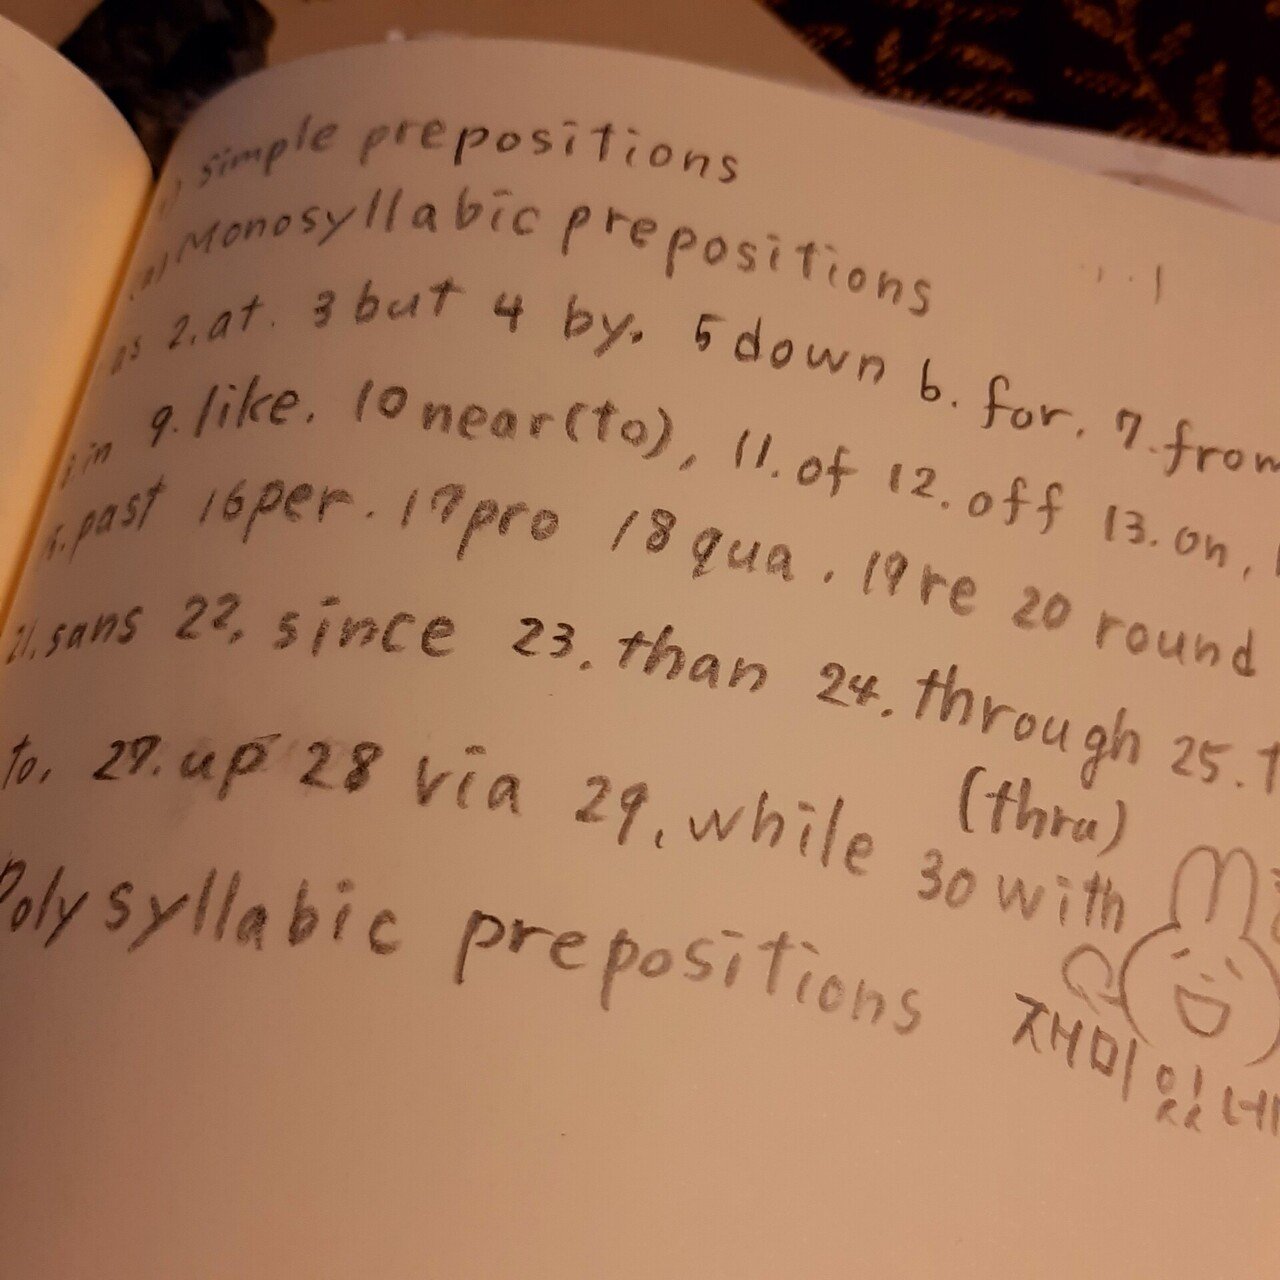 1) simple prepositions
(a) Monosyllabic prepositions
as 2. at. 3 but 4 by. 5 down 6. for. 7. from
in 9. like. 10 near(to), 11. of 12. off 13. on,
15. past 16 per. 17 pro 18 qua. 19 re 20 round
21. sans 22. since 23. than 24. through 25.
(thru)
to. 27. up 28 via 29. while 30 with
Polysyllabic prepositions
재미있네